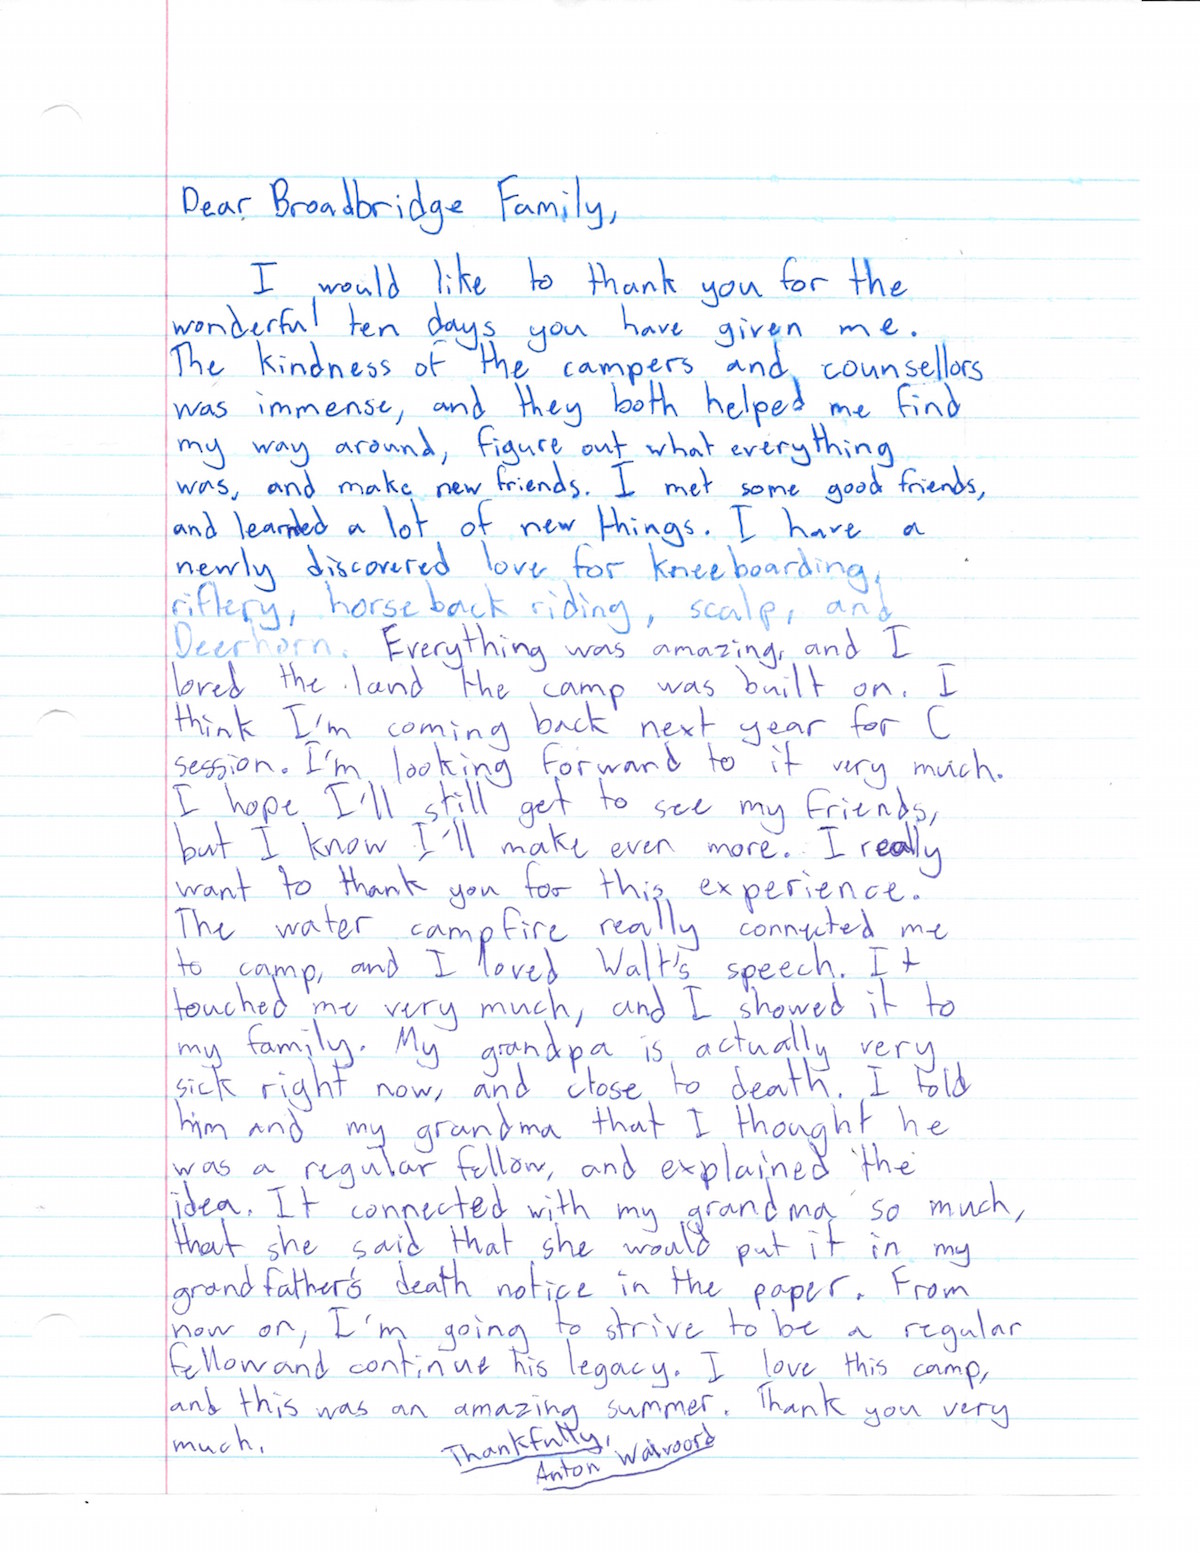 Dear Broadbridge Family,
I would like to thank you for the
wonderful ten days you have given me.
The kindness of the campers and counsellors
was immense, and they both helped me find
my way around, figure out what everything
was, and make new friends. I met some good friends,
and learned a lot of new things. I have a
newly discovered love for kneeboarding,
riflery, horseback riding, scalp, and
Deerhorn. Everything was amazing, and I
loved the land the camp was built on. I
think I'm coming back next year for C
session. I'm looking forward to it very much.
I hope I'll still get to see my friends,
but I know I'll make even more. I really
want to thank you for this experience.
The water campfire really connected me
to camp, and I loved Walt's speech. It
touched me very much, and I showed it to
my family. My grandpa is actually very
sick right now, and close to death. I told
him and my grandma that I thought he
was a regular fellow, and explained the
idea. It connected with my grandma so much,
that she said that she would put it in my
grandfather's death notice in the paper. From
now on, I'm going to strive to be a regular
fellow and continue his legacy. I love this camp,
and this was an amazing summer. Thank you very
much.
Thankfully,
Anton Walvoord